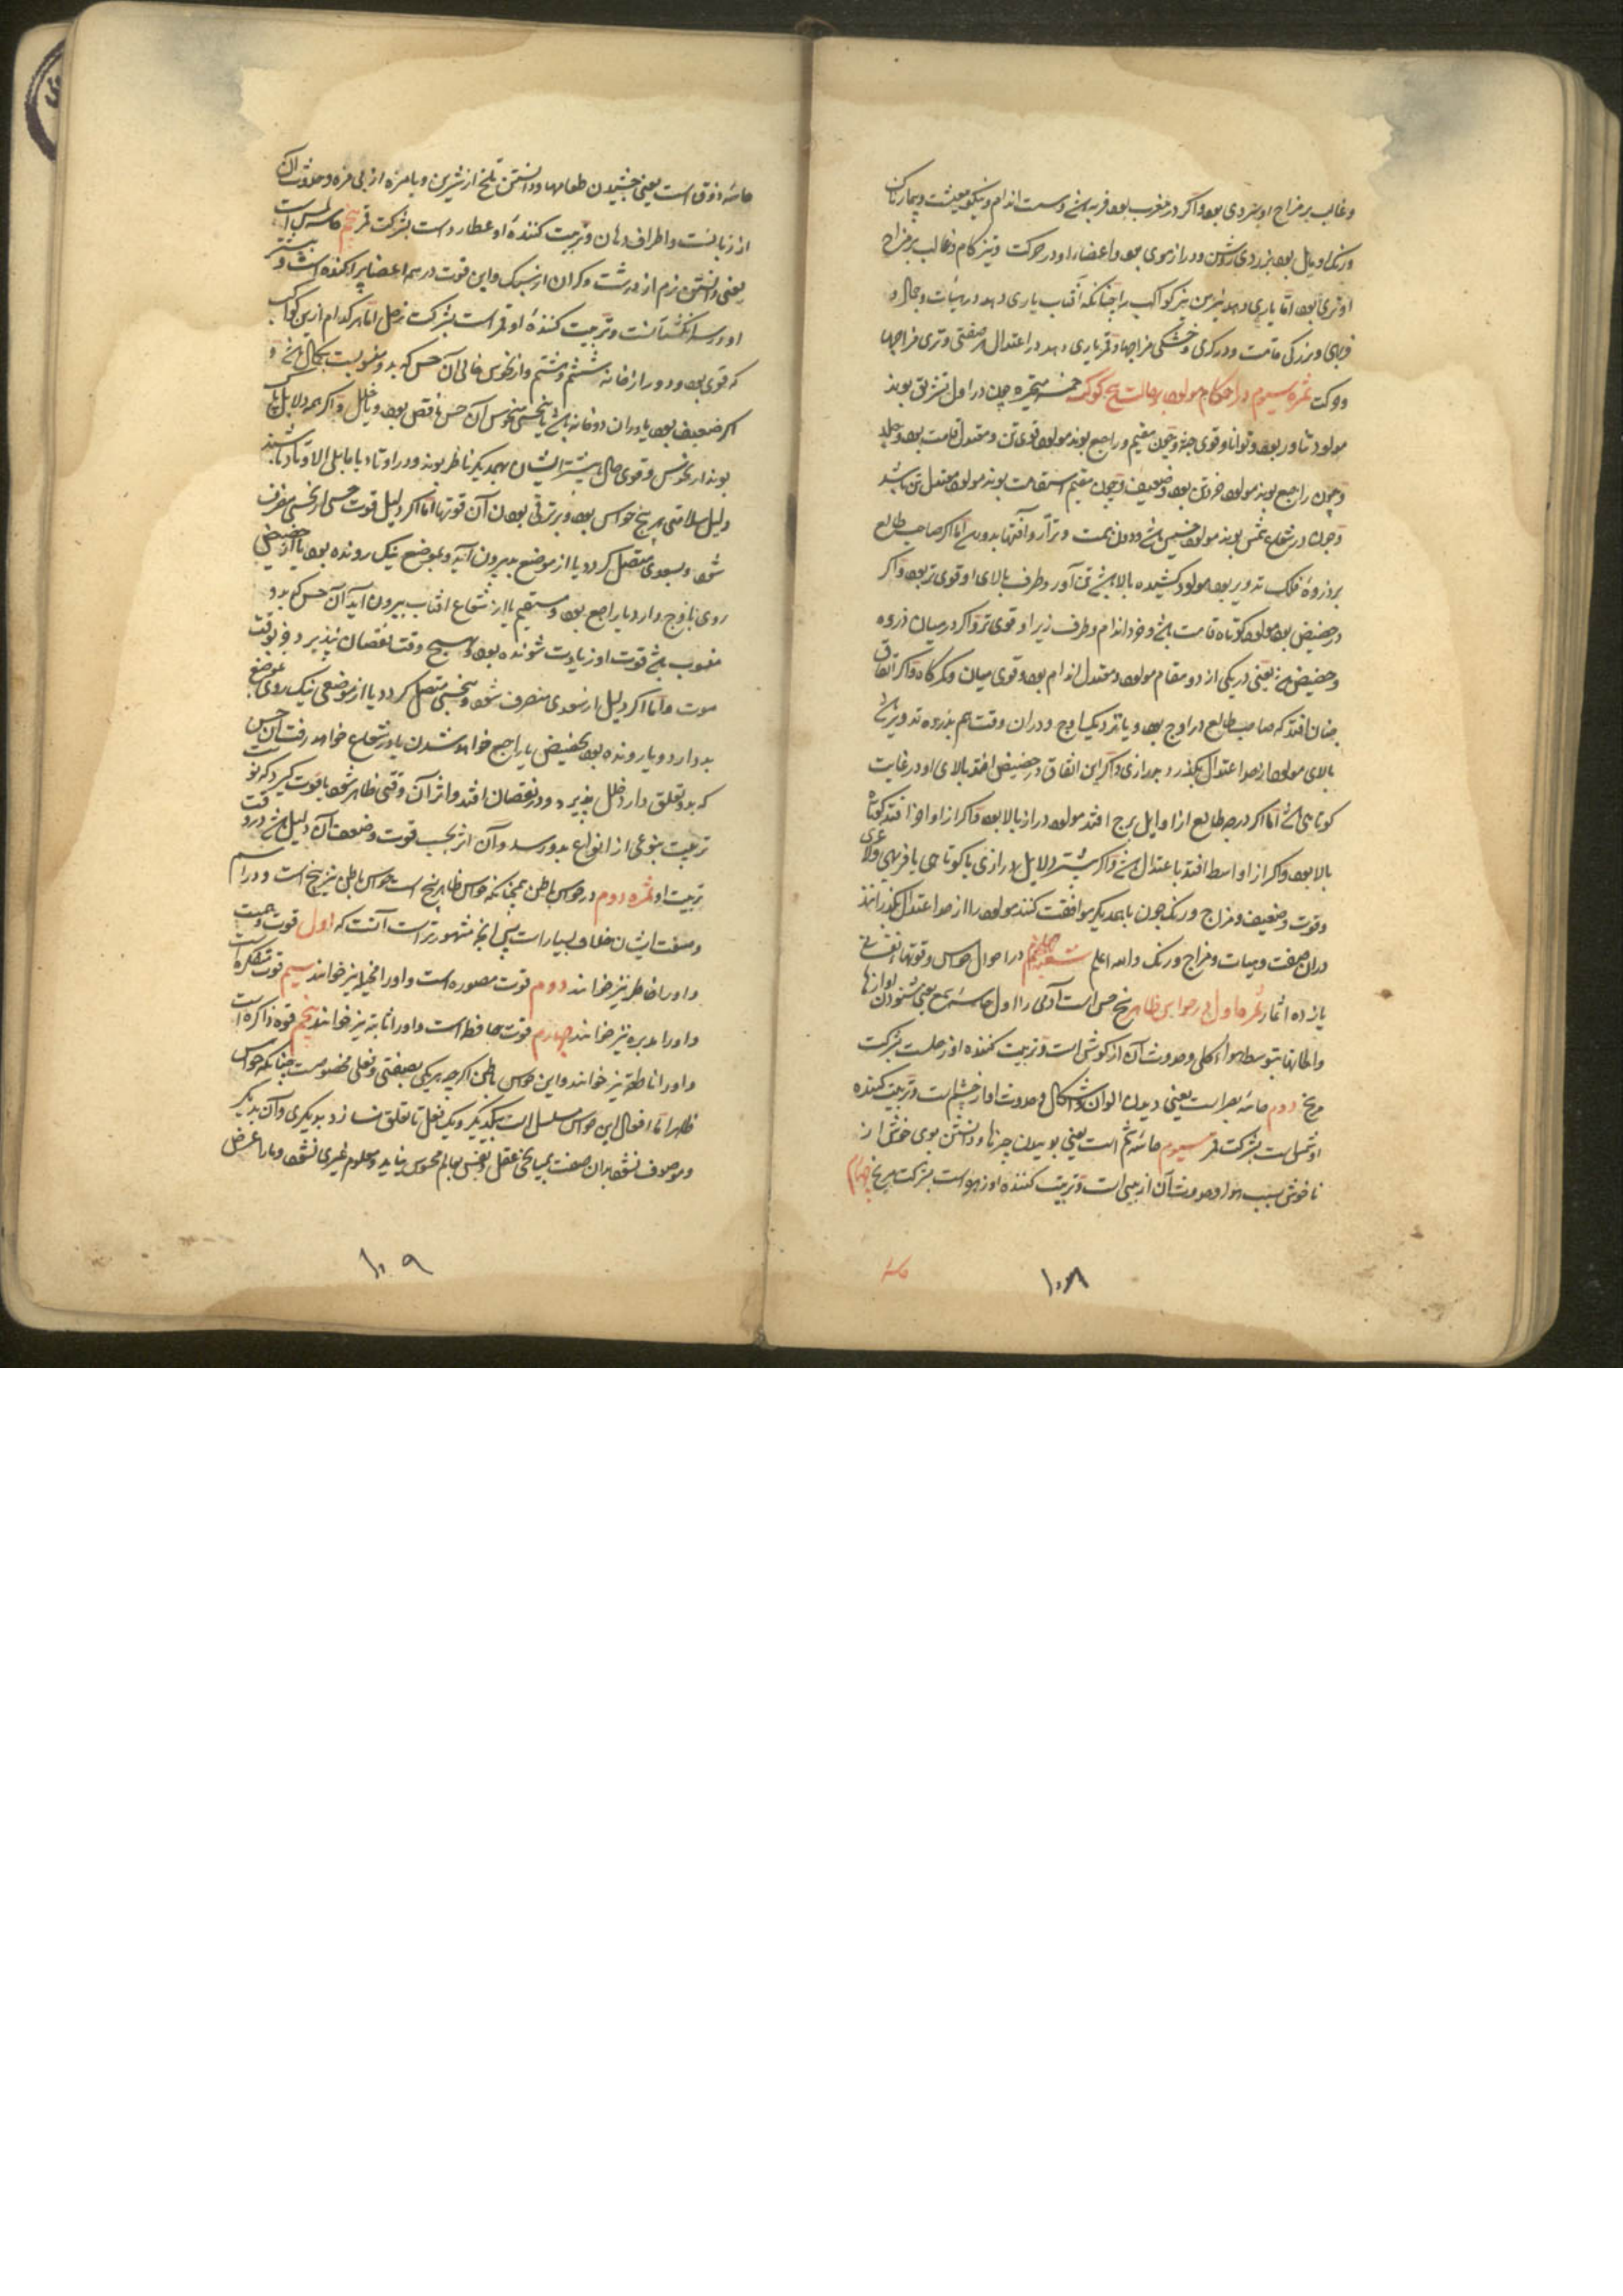 وغالب بر مزاج او سردی بود و اکر در مغرب بود فربه باشد و سست اندام و نیکو معیشت و بیمارناک
و رنک او مایل بود بزردی روشن و دراز موی بود و اعضاء او در حرکت و تیز کام و غالب بر مزاج
او تری بود اما یاری دهد نیرین نیز کواکب را جنانکه آفتاب یاری دهد در هیئات و جمال و
فربهی و بزرکی قامت و در کرمی و خشکی مزاجها و قمر یاری دهد در اعتدال هر صفتی و تری مزاجها
و حرکت ثمره سیوم در احکام مولود بر حالت پنج کوکب خمسه متحیره چون در اول تشریق بوند
مولود تناور بود و توانا و قوی جثه و چون مقیم و راجع بوند مولود قوی تن و معتدل قامت بود و جلد
و چون راجع بوند مولود خرد تن بود و ضعیف و چون مقیم استقامت بوند مولود معتدل تن باشد
و چون در شعاع شمس بوند مولود خسیس باشد و دون همت و آفتها بدو رسد اما اکر صاحب طالع
بر ذروهٔ فلک تدویر بود مولود کشیده بالا باشد تن آور و طرف بالای او قوی تر بود و اکر
در حضیض بود مولود کوتاه قامت باشد و خرد اندام و طرف زیر او قوی تر و اکر در میان ذروه
و حضیض باشد یعنی در یکی از دو مقام مولود معتدل اندام بود و قوی میان و کمرکاه و اکر اتفاق
چنان افتد که صاحب طالع در اوج بود و یا نزدیک اوج و در آن وقت هم بذروه تدویر باشد
بالای مولود از حد اعتدال بکذرد بدرازی و اکر این اتفاق در حضیض افتد بالای او در غایت
کوتاهی باشد اما اکر درجه طالع از اوایل برج افتد مولود دراز بالا بود و اکر از اواخر افتد کوتاه
بالا بود و اکر از اواسط افتد با عتدال باشد و اکر بیشتر دلایل بدرازی یا کوتاهی یا فربهی و لاغری
و قوت و ضعیف و مزاج و رنک چون با یکدیکر موافقت کنند مولود را از حد اعتدال بکذرانند
در آن صفت و هیات و مزاج و رنک والله اعلم شعبه پنجم در احوال حواس و قوتهاء نفسانی
یازده اثمار ثمره اول در حواس ظاهر پنج حس است آدمی را اول حاسه سمع یعنی شنودن آوازها
و الحانها بتوسط هواء کلی و حدوث آن از کوش است و تربیت کننده او زحلست بشرکت
مریخ دوم حاسهٔ بصر است یعنی دیدن الوان و اشکال و حدوث او از چشم است و تربیت کننده
او شمس است بشرکت قمر سیوم حاسهٔ شم است یعنی بوییدن چیزها و دانستن بوی خوش از
ناخوش بسبب هوا و حدوث آن از بینی است و تربیت کننده او زهره است بشرکت مریخ چهارم
۱۰۸
حاسهٔ ذوق است یعنی چشیدن طعامها و دانستن تلخ از شیرین و با مزه از بی مزه و حدوث آن
از زبانست و اطراف دهان و تربیت کنندهٔ او عطارد است بشرکت قمر پنجم حاسه لمس است
یعنی دانستن نرم از درشت و کران از سبک و این قوت در همه اعضا پراکنده است و بیشتر
او در سر انکشتانست و تربیت کنندهٔ او قمر است بشرکت زحل اما هر کدام از این کواکب
که قوی بود و دور از خانه ششم و هشتم و از نحوس خالی آن حس که بدو منسوبست بکمال باشد و
اکر ضعیف بود یا در آن دو خانه باشد یا بنحسی منحوس آن حس ناقص بود و با خلل و اکر همه دلایل پاک
بوند از نحوس و قوی حال باشند ایشان بیکدیکر ناظر بوند و در اوتاد یا مایلی الاوتاد باشند
دلیل سلامتی هر پنج حواس بود و بر ترقی بودن آن قوتها اما اکر دلیل قوت حسی از نحسی منصرف
شود و بسعدی متصل کردد یا از موضع بد بیرون آید و بموضع نیک رونده بود یا از حضیض
روی باوج دارد یا راجع بود و مستقیم یا از شعاع آفتاب بیرون آید آن حس که بدو
منسوب باشد قوت او زیادت شونده بود و هیچ وقت نقصان نپذیرد جز بوقت
موت و اما اکر دلیل از سعدی منصرف شود و بنحسی متصل کردد یا از موضعی نیک روی بموضع
بد دارد و یا رونده بود بحضیض یا راجع خواهد شدن یا در شعاع خواهد رفت آن حس
که بدو تعلق دارد خلل پذیرد و در نقصان افتد و اثر آن وقتی ظاهر شود یا قوت کیرد که نوبت
تربیت بنوعی از انواع بدو رسد و آن اثر بحسب قوت و ضعف آن دلیل باشد در وقت
تربیت او ثمره دوم در حواس باطن همچنانکه حواس ظاهر پنج است حواس باطن نیز پنج است و در اسم
و صفت ایشان خلاف بسیار است پس آنچه مشهورتر است آنست که اول قوت وهمیت
و او را خاطر نیز خوانند دوم قوت مصوره است و او را مخیله نیز خوانند سیم قوت متفکره است
و او را مدبره نیز خوانند چهارم قوت حافظ است و او را ثابته نیز خوانند پنجم قوه ذاکره است
و او را ناطقه نیز خوانند و این حواس باطن اکرچه هر یکی بصفتی و فعلی مخصوصست چنانکه حواس
ظاهر اما افعال این حواس مسلسل است بیکدیکر و یک فعل تا تعلق نسازد بدیکری و آن بدیکر
و موصوف نشود بدان صفت بمیانجی عقل و نفس بعالم محسوس نیاید و معلوم غیری نشود و ما را غرض
۱۰۹